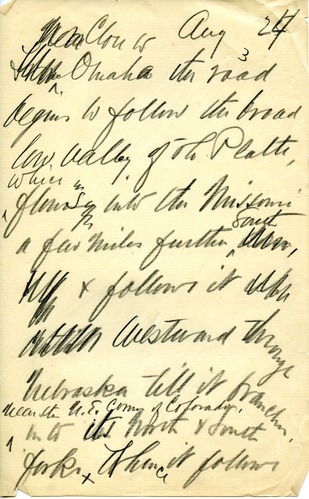 Aug 24
Omaha the road
3
begins to follow the broad
low valley of the Platte,
which
flows into the Missouri
south
a few miles further
& follows it
Westward through
Nebraska till it branches,
near the N.E. Corny of Colorado,
into the North & South
forks. Thence it follows